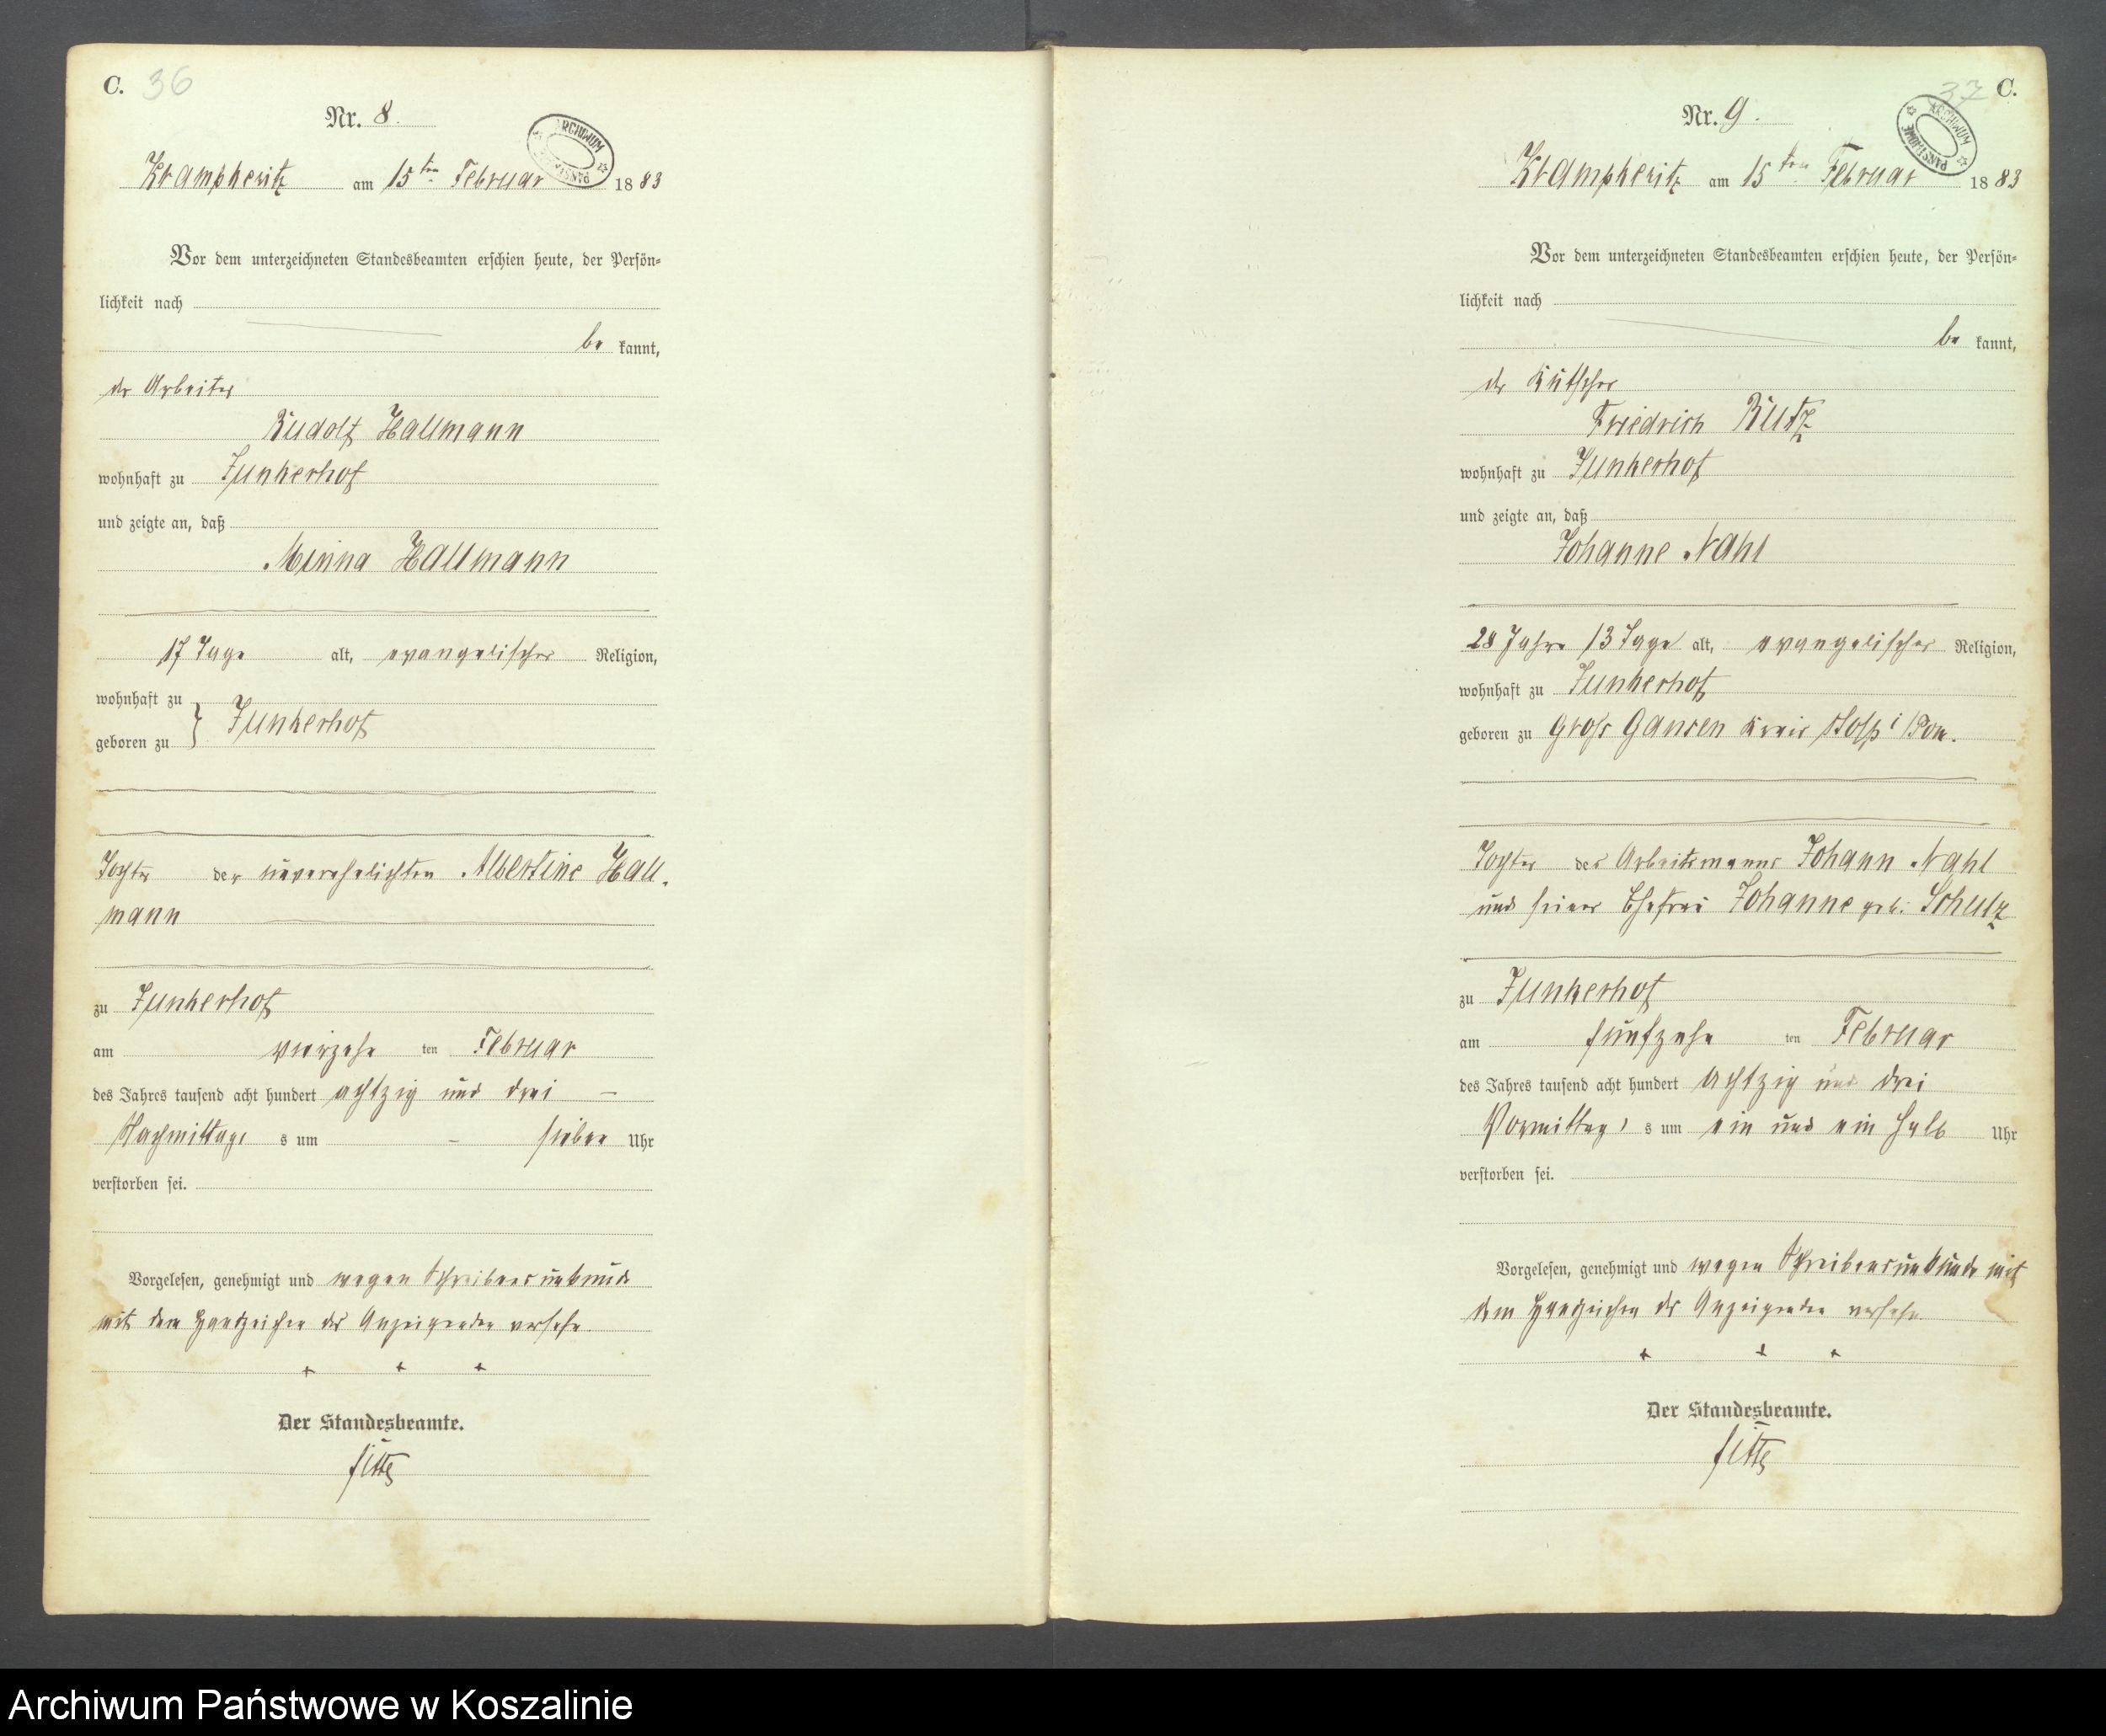 C. 36
Nr. 8.
ARCHIWUM PAŃSTWOWE
Krampkewitz am 15ten Februar 1883
Vor dem unterzeichneten Standesbeamten erschien heute, der Persön-
lichkeit nach
be kannt,
der Arbeiter
Rudolf Hallmann
wohnhaft zu Junkerhof
und zeigte an, daß
Minna Hallmann
17 Tage alt, evangelischer Religion,
wohnhaft zu
geboren zu } Junkerhof
Tochter der unverehelichten Albertine Hall-
mann
zu Junkerhof
am vierzehn ten Februar
des Jahres tausend acht hundert achtzig und drei
Nachmittags um sieben Uhr
verstorben sei.
Vorgelesen, genehmigt und wegen Schreibensunkunde
mit dem Handzeichen des Anzeigenden versehen.
+ + +
Der Standesbeamte.
37 C.
Nr. 9.
ARCHIWUM PAŃSTWOWE
Krampkewitz am 15ten Februar 1883
Vor dem unterzeichneten Standesbeamten erschien heute, der Persön-
lichkeit nach
be kannt,
der Kutscher
Friedrich Rutz
wohnhaft zu Junkerhof
und zeigte an, daß
Johanne Nahl
28 Jahre 13 Tage alt, evangelischer Religion,
wohnhaft zu Junkerhof
geboren zu Gross Gansen Kreis Stolp i Pom.
Tochter des Arbeitsmanns Johann Nahl
und seiner Ehefrau Johanne geb. Schulz
zu Junkerhof
am fünfzehn ten Februar
des Jahres tausend acht hundert achtzig und drei
Vormittags um ein und ein halb Uhr
verstorben sei.
Vorgelesen, genehmigt und wegen Schreibensunkunde mit
dem Handzeichen des Anzeigenden versehen.
+ + +
Der Standesbeamte.
Archiwum Państwowe w Koszalinie